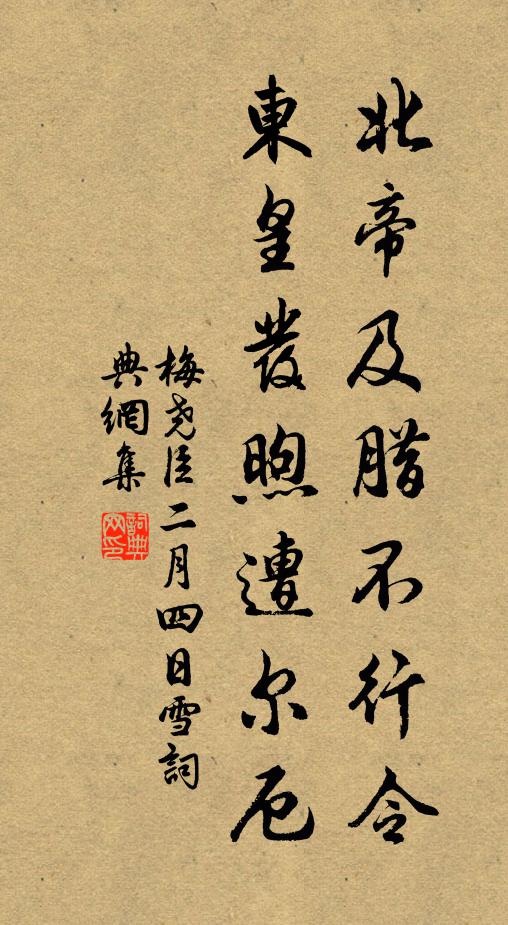 北帝及腊不行令
東皇發煦遭尔厄
梅堯臣二月四日雪詞
典網集
詞典
网印